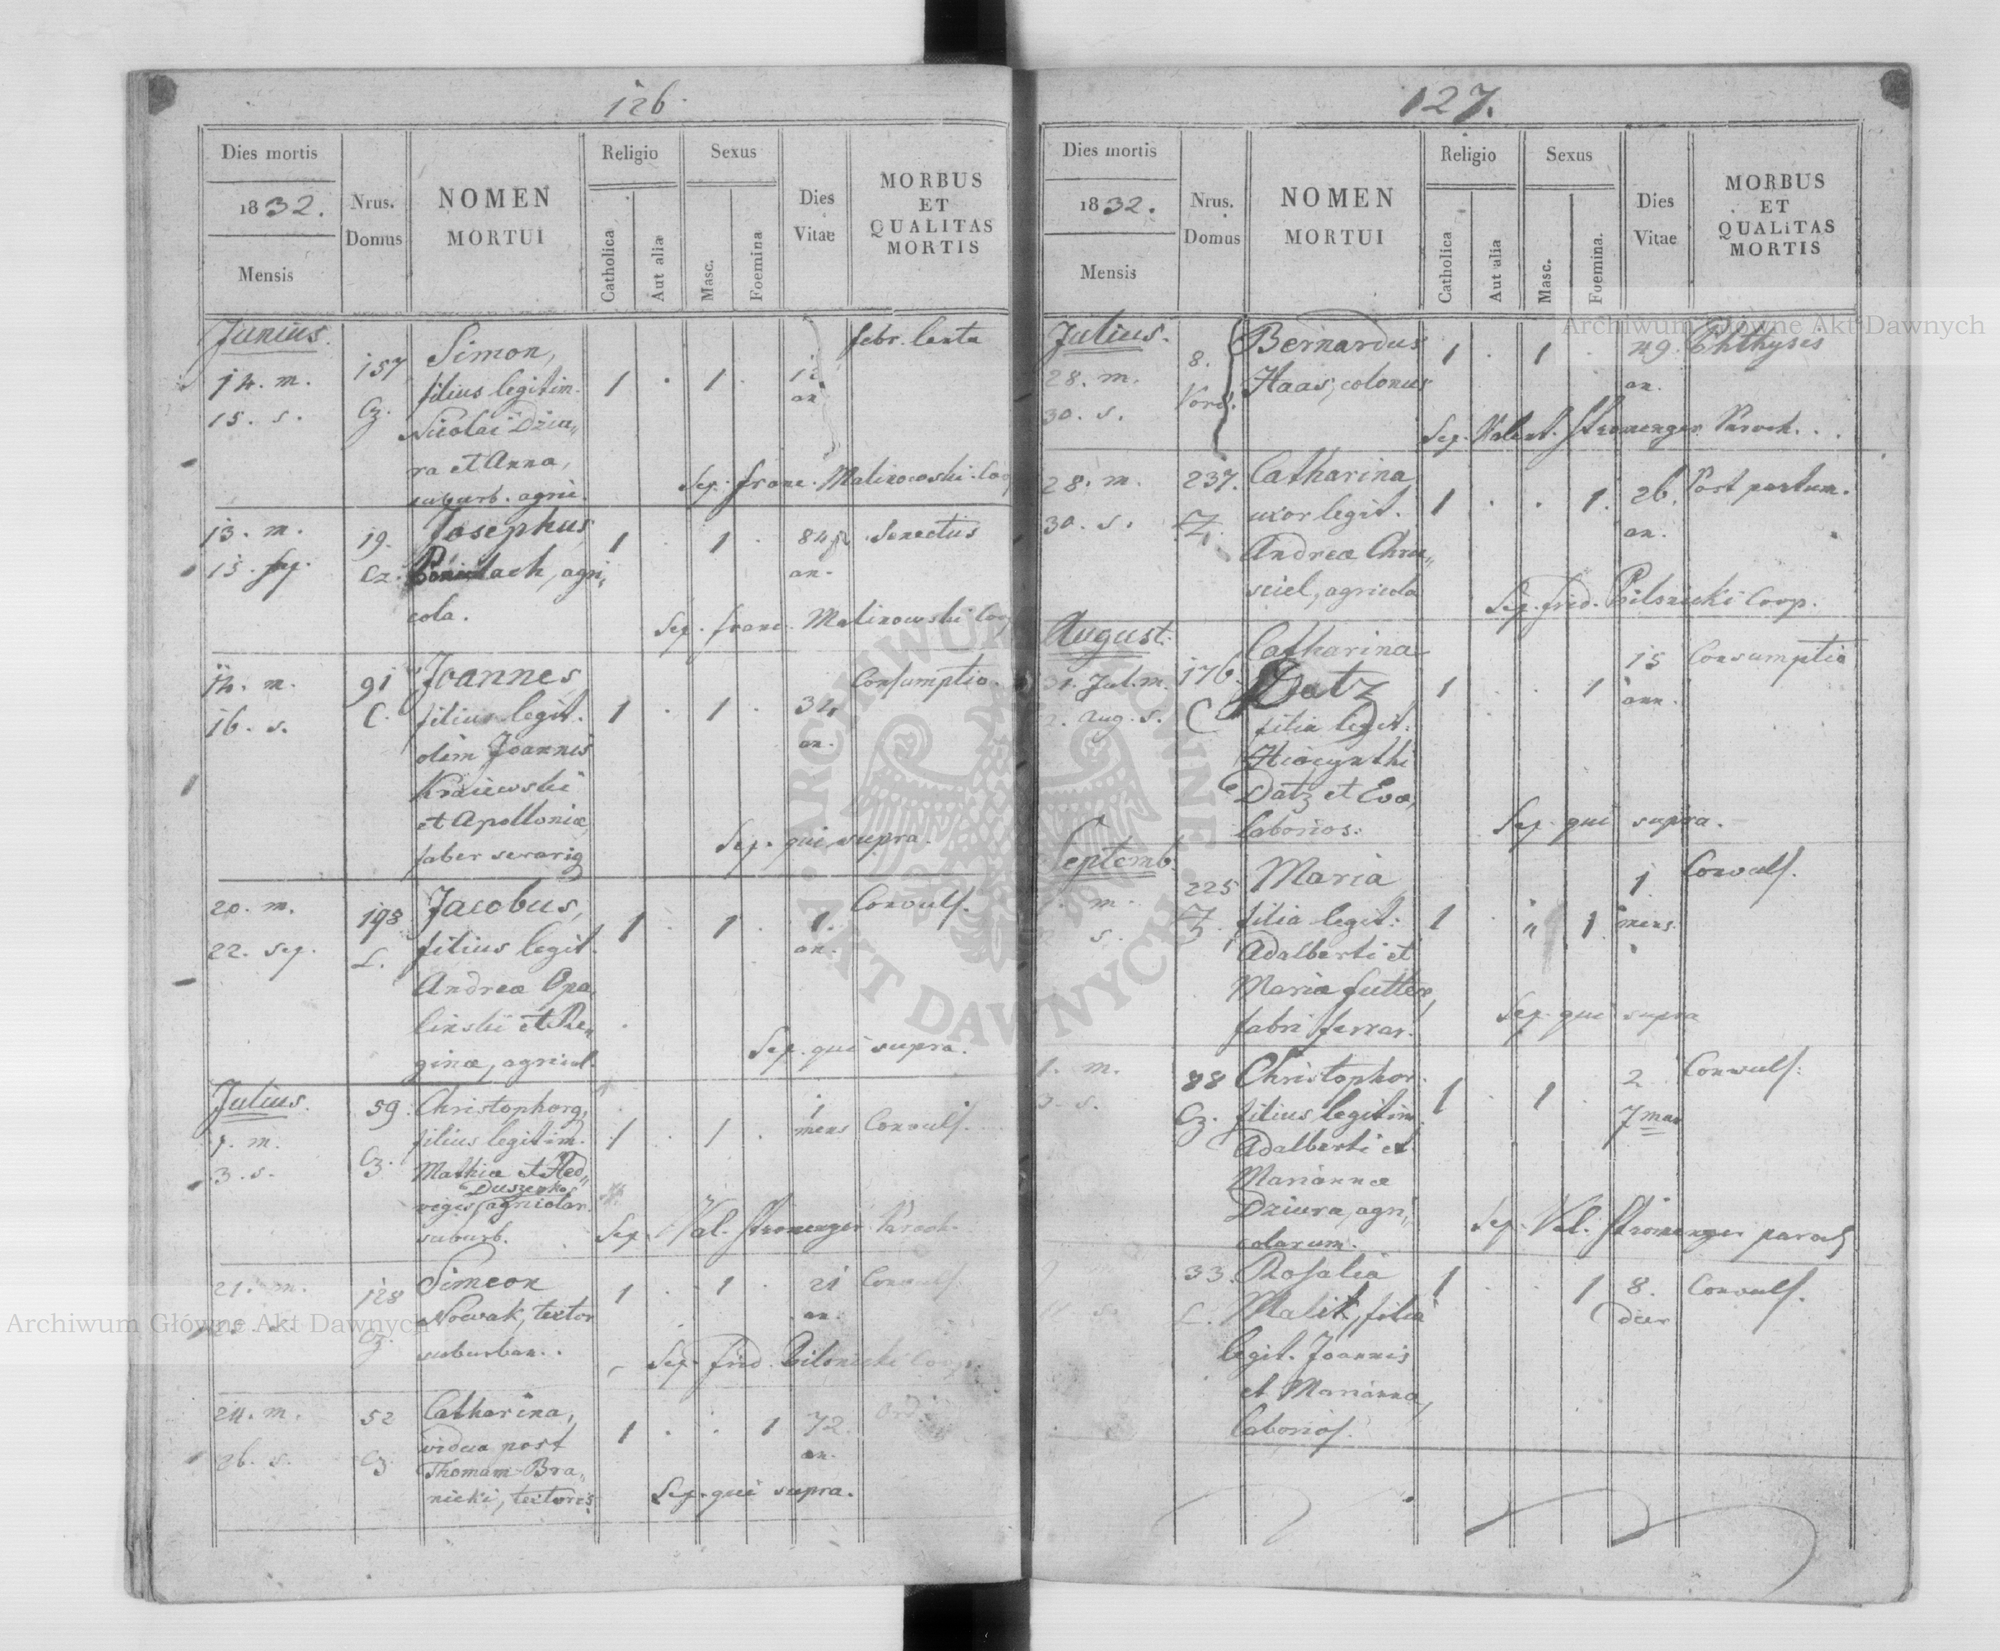 126.
Dies mortis
1832.
Mensis
Nrus.
Domus
NOMEN
MORTUI
Religio
Catholica
Aut aliæ
Sexus
Masc.
Foemina
Dies
Vitae
MORBUS
ET
QUALITAS
MORTIS
Junius.
14. m.
15. s.
157
Cz.
Simon,
filius legitim.
Nicolai Dziu„
ra et Anna,
suburb. agri.
1 . 1 .
an.
febr. lenta
Sep. franc. Malinowski Coop
13. m.
15. sep.
19.
Cz.
Josephus
agri„
cola.
1 . 1 .
84
an.
Senectus
Sep. franc. Malinowski Coop
14. m.
16. s.
91
C.
Joannes,
filius legit.
olim Joannis
Kraiewski
et Apolloniæ,
faber serariq
1 . 1 .
34
an.
Consumptio.
Sep. qui supra.
20. m.
22. sep.
198
L.
Jacobus,
filius legit.
Andreæ Opa„
linski et Re„
ginæ, agricol.
1 . 1 .
1.
an.
Convuls.
Sep. qui supra.
Julius.
1. m.
3. s.
59.
Cz.
Christophorq,
filius legitim.
Mathiæ et Hed„
Duszenko
vigis, agricolar.
suburb.
1 . 1 .
1
mens
Convuls.
Sep. Val. Stromenger Paroch.
21. m.
128
Cz.
Simeon
Nowak, textor
suburban.
1 . 1 .
21
an.
Convuls.
Sep. frid. Pilsnicki Coop.
24. m.
26. s.
52
Cz.
Catharina,
vidua post
Thomam Bra„
nicki, textoris
1 . . 1
72.
an.
Sep. qui supra.
127.
Dies mortis
1832.
Mensis
Nrus.
Domus
NOMEN
MORTUI
Religio
Catholica
Aut alia
Sexus
Masc.
Foemina.
Dies
Vitae
MORBUS
ET
QUALITAS
MORTIS
Julius.
28. m.
30. s.
8.
Bernardus
Haas, colonus
1 . 1 .
49.
an.
Phthysis
Sep. Valent. Stromenger Paroch.
28. m.
30. s.
237.
Catharina
uxor legit.
Andreæ Chru„
sciel, agricola
1 . . 1.
26.
an.
Post partum.
Sep. frid. Pilsnicki Coop.
August.
31. Jul. m.
2. Aug. s.
176.
C
Catharina
Datz
filia legit.
Hiacynthi
Datz et Evæ,
laborios.
1 . . 1
15
ann.
Consumptio
Sep. qui supra.
Septemb.
m.
s.
225
Maria
filia legit.
Adalberti et
Mariæ Futter,
fabri ferrar.
1 . „ 1.
1.
mens.
Convuls.
Sep. qui supra
1. m.
3. s.
88
Cz.
Christophor.
filius legitim.
Adalberti et
Mariannæ
Dziura, agri„
colarum.
1 . 1 .
2
Convuls.
Sep. Val. Stromenger paroch
33.
L.
Rosalia
Malik, filia
legit. Joannis
et Marianna,
laborios.
1 . . 1
8.
dier
Convuls.
Archiwum Główne Akt Dawnych
Archiwum Główne Akt Dawnych
ARCHIWUM GŁÓWNE · AKT DAWNYCH ·